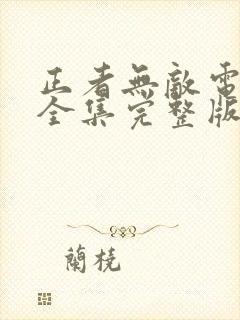 正者無敵電
全集完整版
蘭橈